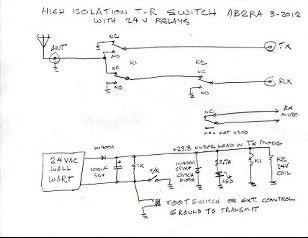 HIGH ISOLATION T-R SWITCH AB2RA 3-2012
WITH 24V RELAYS
ANT
NC
NO
K1
NC
K2
NO
TX
RX
NC
NO
NC
RX
MUTE
NO = NOT USED
+29.8 UNDER LOAD IN TX MODE
24VAC
WALL
WART
1N4001
100uF
50V
1K
T/R
1N4001
SPIKE
DIODE
2.7K
LED
K1
K2
24V
COIL
FOOT SWITCH OR EXT. CONTROL
GROUND TO TRANSMIT